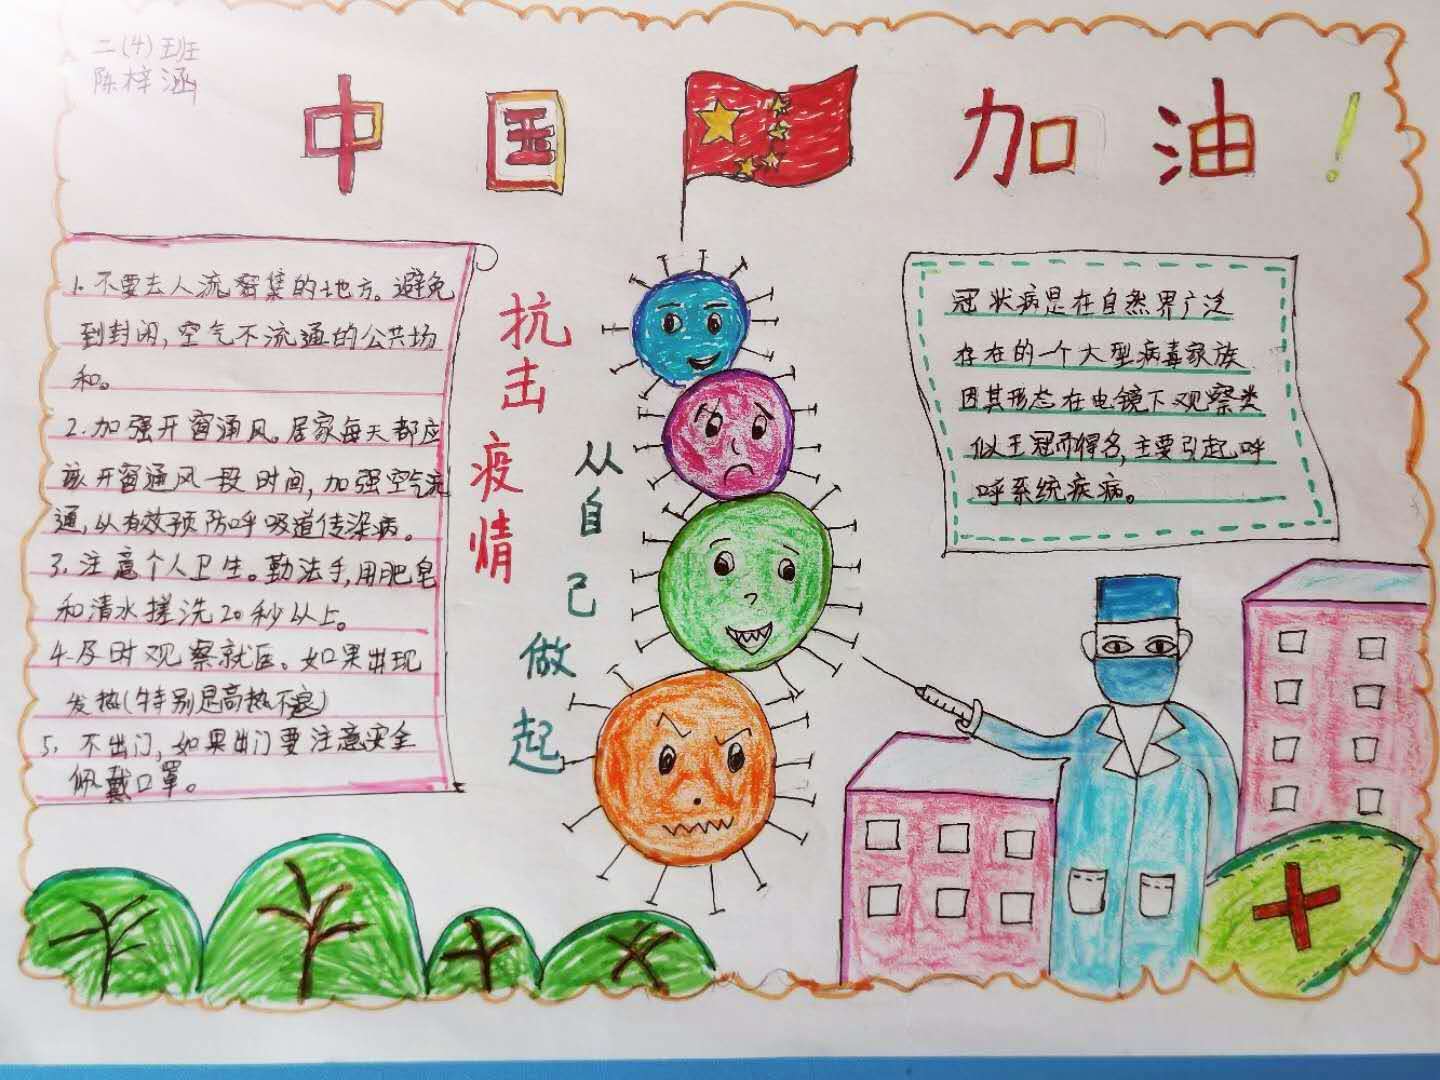 二(4)班
陈梓涵
中国加油!
1.不要去人流密集的地方。避免
到封闭,空气不流通的公共场
和。
2.加强开窗通风。居家每天都应
该开窗通风一段时间,加强空气流
通,以有效预防呼吸道传染病。
3.注意个人卫生。勤法手,用肥皂
和清水搓洗20秒以上。
4.及时观察就医。如果出现
发热(特别是高热不退)
5.不出门,如果出门要注意安全
佩戴口罩。
抗击疫情
从自己做起
冠状病是在自然界广泛
存在的一个大型病毒家族
因其形态在电镜下观察类
似王冠而得名,主要引起呼
呼系统疾病。